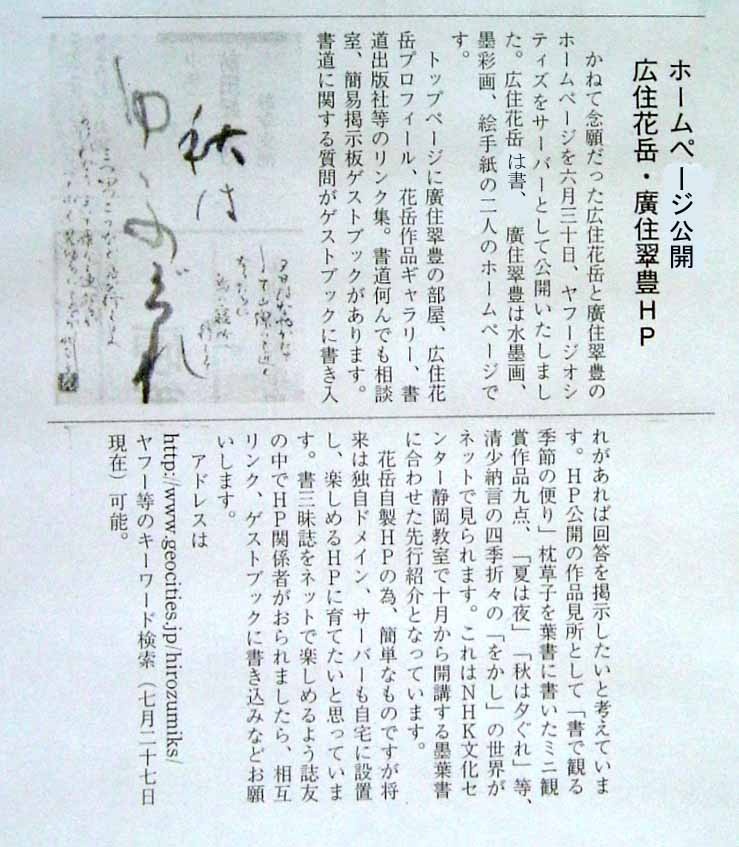 ホームページ公開
広住花岳・廣住翠豊HP
かねて念願だった広住花岳と廣住翠豊の
ホームページを六月三十日、ヤフージオシ
ティズをサーバーとして公開いたしまし
た。広住花岳は書、廣住翠豊は水墨画、
墨彩画、絵手紙の二人のホームページで
す。
トップページに廣住翠豊の部屋、広住花
岳プロフィール、花岳作品ギャラリー、書
道出版社等のリンク集。書道何んでも相談
室、簡易掲示板ゲストブックがあります。
書道に関する質問がゲストブックに書き入
秋は
ゆふぐれ
れがあれば回答を掲示したいと考えていま
す。HP公開の作品見所として「書で観る
季節の便り」枕草子を葉書に書いたミニ観
賞作品九点、「夏は夜」「秋は夕ぐれ」等、
清少納言の四季折々の「をかし」の世界が
ネットで見られます。これはNHK文化セ
ンター静岡教室で十月から開講する墨葉書
に合わせた先行紹介となっています。
花岳自製HPの為、簡単なものですが将
来は独自ドメイン、サーバーも自宅に設置
し、楽しめるHPに育てたいと思っていま
す。書三昧誌をネットで楽しめるよう誌友
の中でHP関係者がおられましたら、相互
リンク、ゲストブックに書き込みなどお願
いします。
アドレスは
http://www.geocities.jp/hirozumiks/
ヤフー等のキーワード検索（七月二十七日
現在）可能。